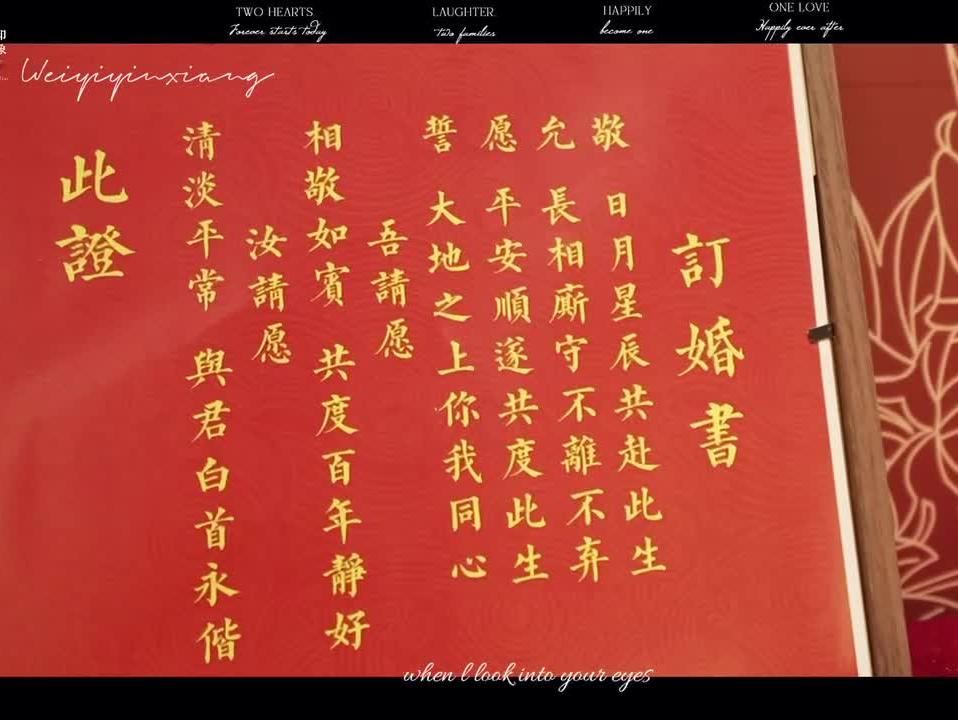 TWO HEARTS
Forever starts today
LAUGHTER
Two families
HAPPILY
become one
ONE LOVE
Happily ever after
Weiyiyinxiang
訂婚書
敬 日月星辰共赴此生
允 長相廝守不離不弃
愿 平安順遂共度此生
誓 大地之上你我同心
吾請愿
相敬如賓 共度百年靜好
汝請愿
清淡平常 與君白首永偕
此證
when l look into your eyes